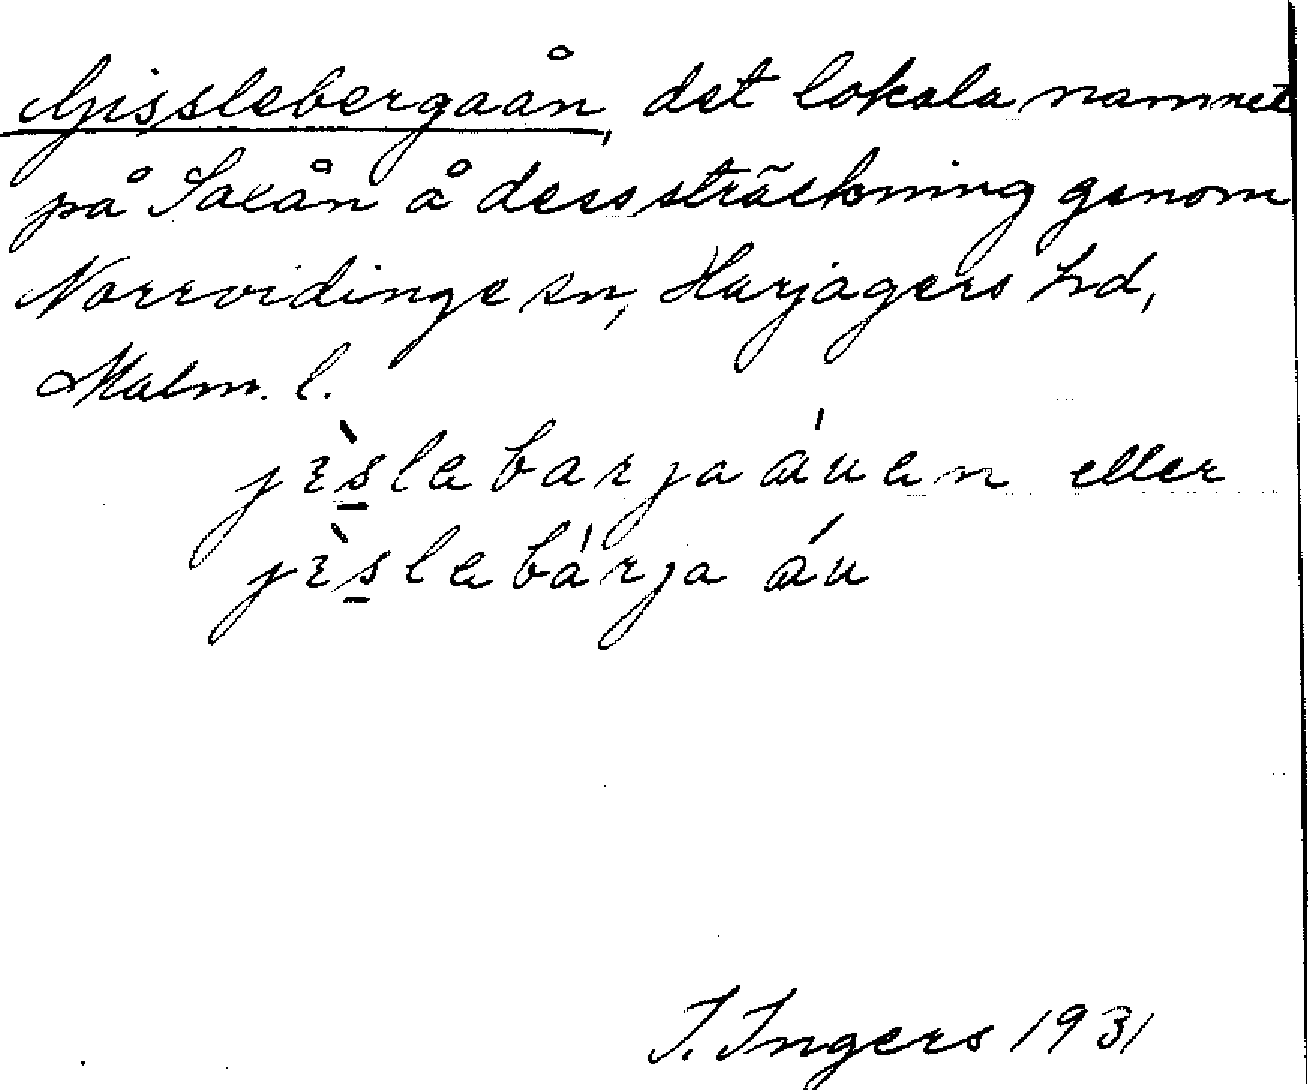 Gisslebergaån, det lokala namnet
på Saxån å dess sträckning genom
Norrvidinge sn, Harjagers hd,
Malm. l.
jɛ̀slabarjaáuan eller
jɛ̀slabárja áu
I. Ingers 1931